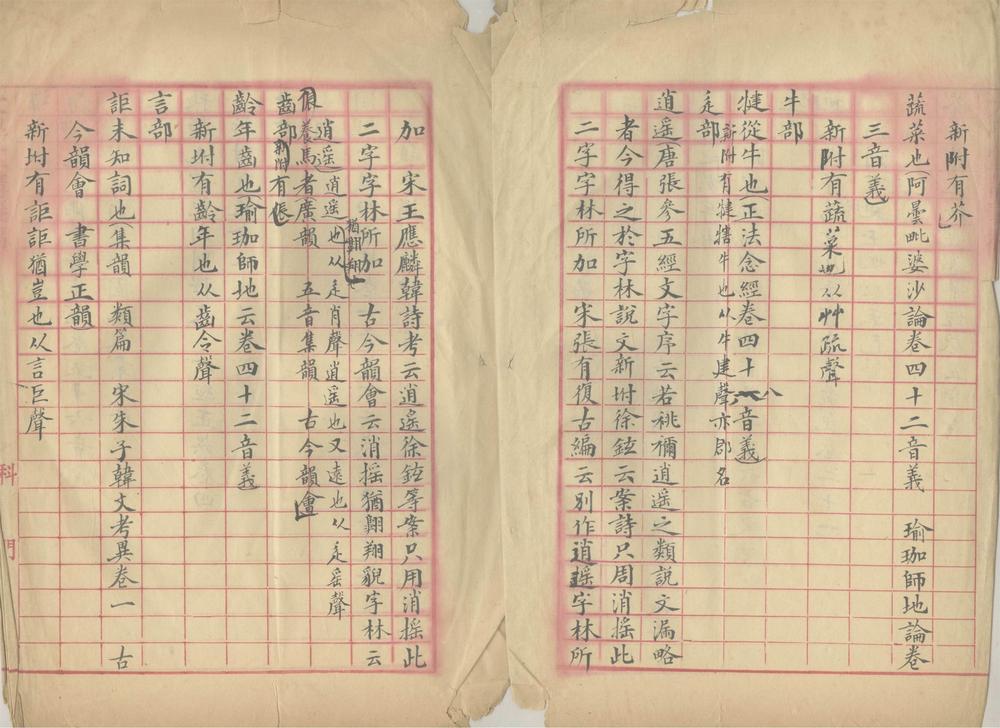 新附有芥
蔬菜也(阿曇毗婆沙論卷四十二音義　瑜珈師地論卷
三音義
新附有蔬菜也从艸疏聲
牛部
犍從牛也(正法念經卷四十八音義
新附有犍犗牛也从牛建聲亦郡名
辵部
逍遥(唐張參五經文字序云若祧禰逍遥之類說文漏略
者今得之於字林說文新坿徐鉉云案詩只周消摇此
二字字林所加　宋張有復古編云別作逍遥字林所
加　宋王應麟韓詩考云逍遥徐鉉等案只用消摇此
二字字林所加　古今韻會云消摇猶翺翔貌字林云
逍遥(也从辵肖聲逍遥也又遠也从辵䍃聲
逍遥猶翺翔也
㑐養馬者廣韻　五音集韻　古今韻會
齒部
新附有㑐
齡年齒也(瑜珈師地云卷四十二音義
新坿有齡年也从齒令聲
言部
詎未知詞也(集韻　類篇　宋朱子韓文考異卷一　古
今韻會　書學正韻
新坿有詎詎猶豈也从言巨聲
科
門